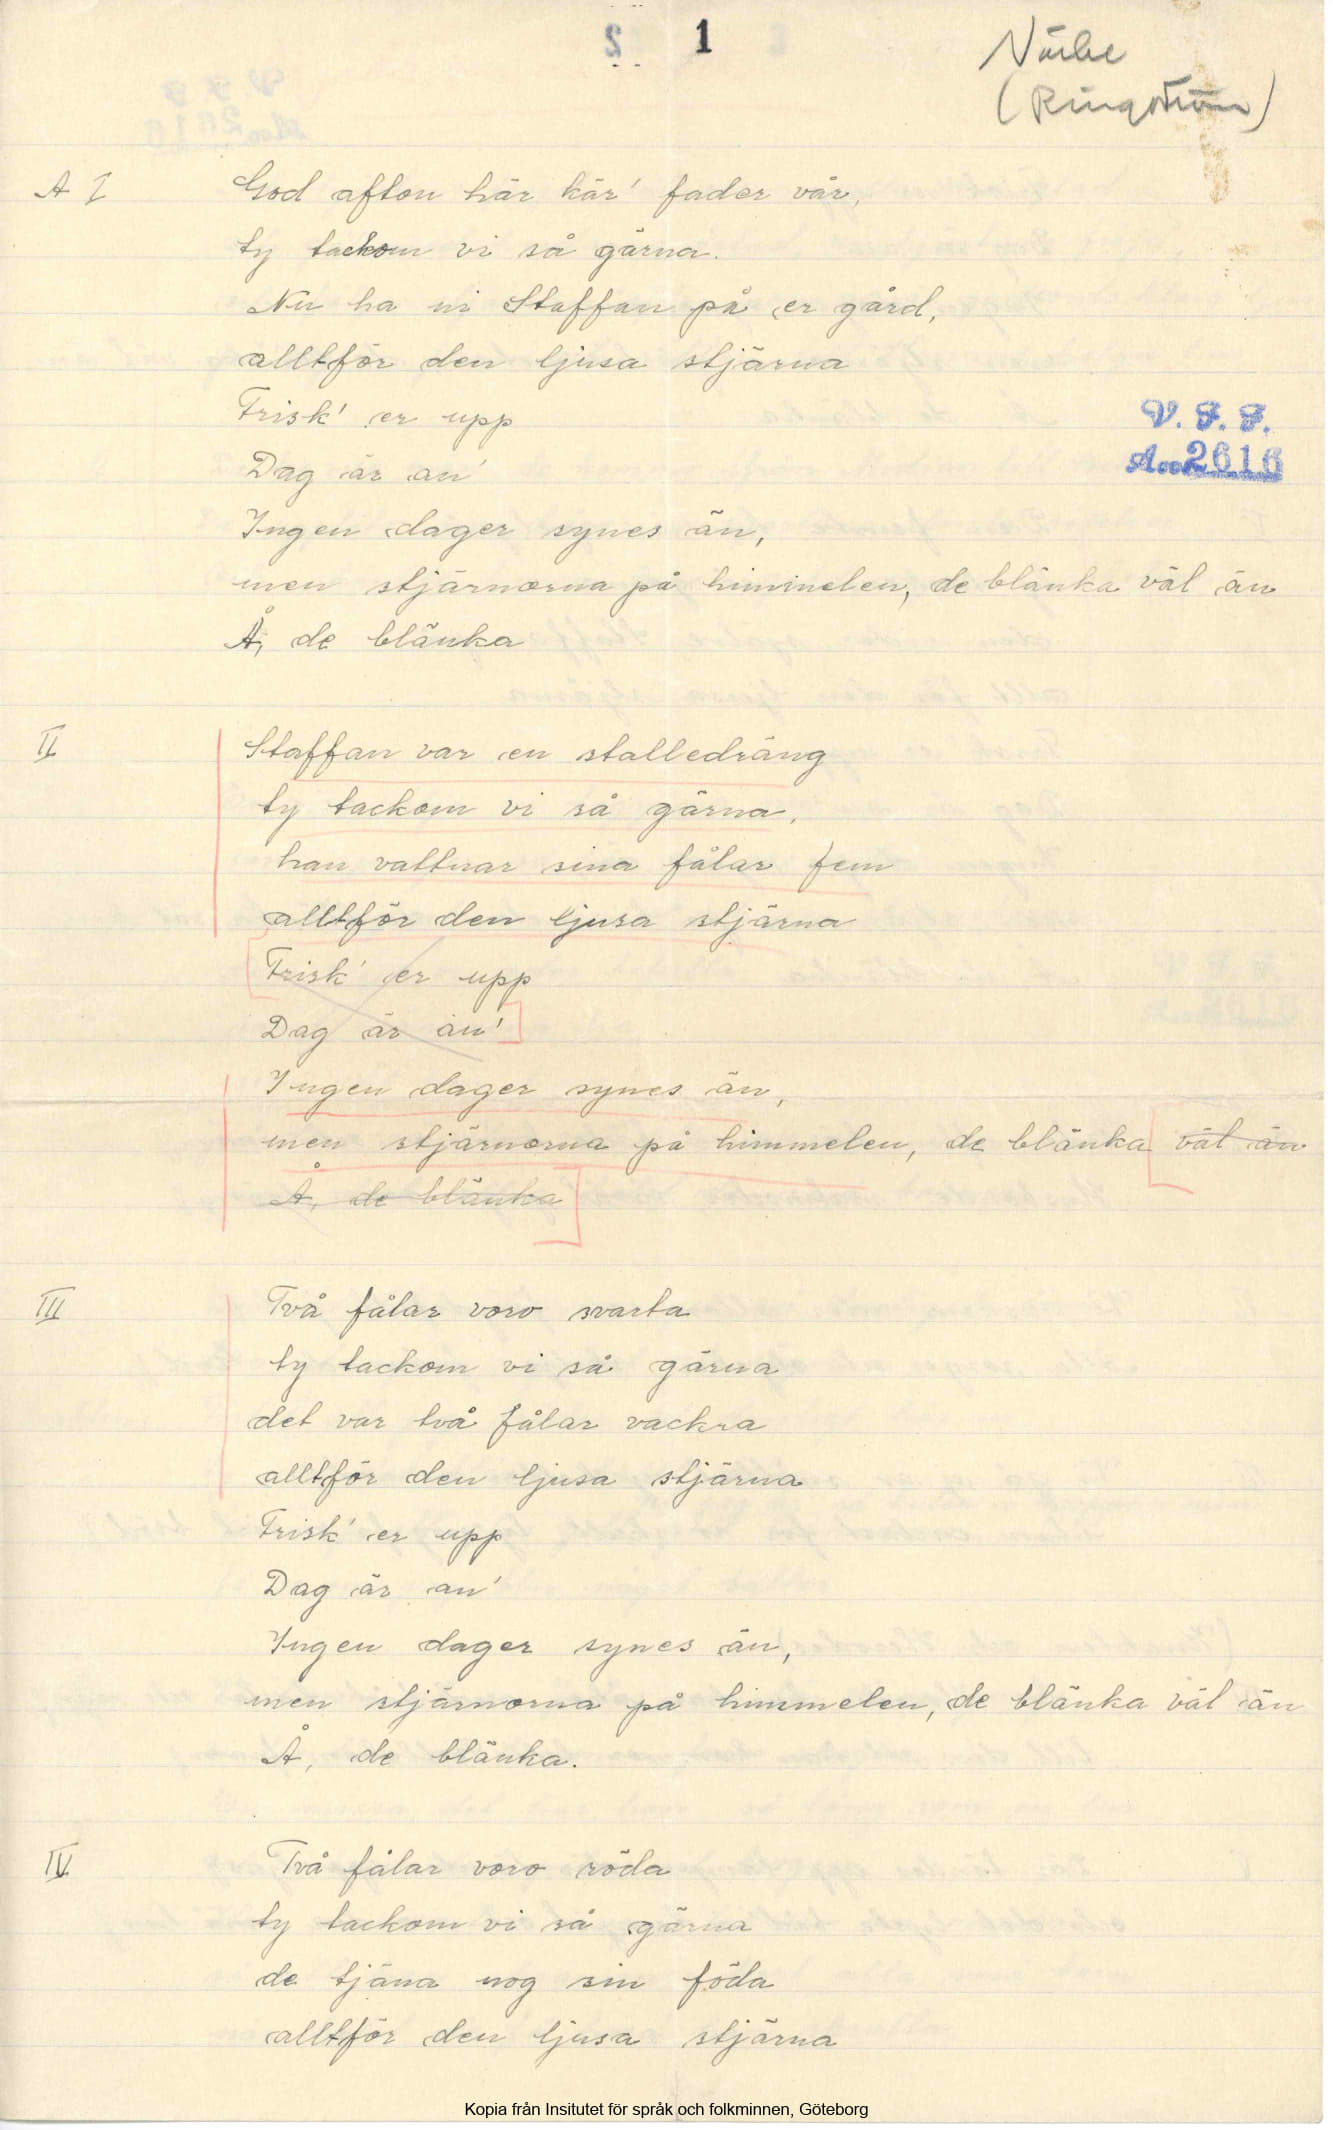 1
(Ringström)
V. F. F.
Acc 2616
A I
God afton här kär' fader vår,
ty tackom vi så gärna.
Nu ha ni Staffan på er gård,
alltför den ljusa stjärna
Frisk' er upp
Dag är an'
Ingen dager synes än,
men stjärnorna på himmelen, de blänka väl än
Å, de blänka
II
Staffan var en stalledräng
ty tackom vi så gärna,
han vattnar sina fålar fem
alltför den ljusa stjärna
Frisk' er upp
Dag är an'
Ingen dager synes än,
men stjärnorna på himmelen, de blänka väl än
Å, de blänka
III
Två fålar voro svarta
ty tackom vi så gärna
det var två fålar vackra
alltför den ljusa stjärna
Frisk' er upp
Dag är an'
Ingen dager synes än,
men stjärnorna på himmelen, de blänka väl än
Å, de blänka.
IV
Två fålar voro röda
ty tackom vi så gärna
de tjäna nog sin föda
alltför den ljusa stjärna
Kopia från Insitutet för språk och folkminnen, Göteborg